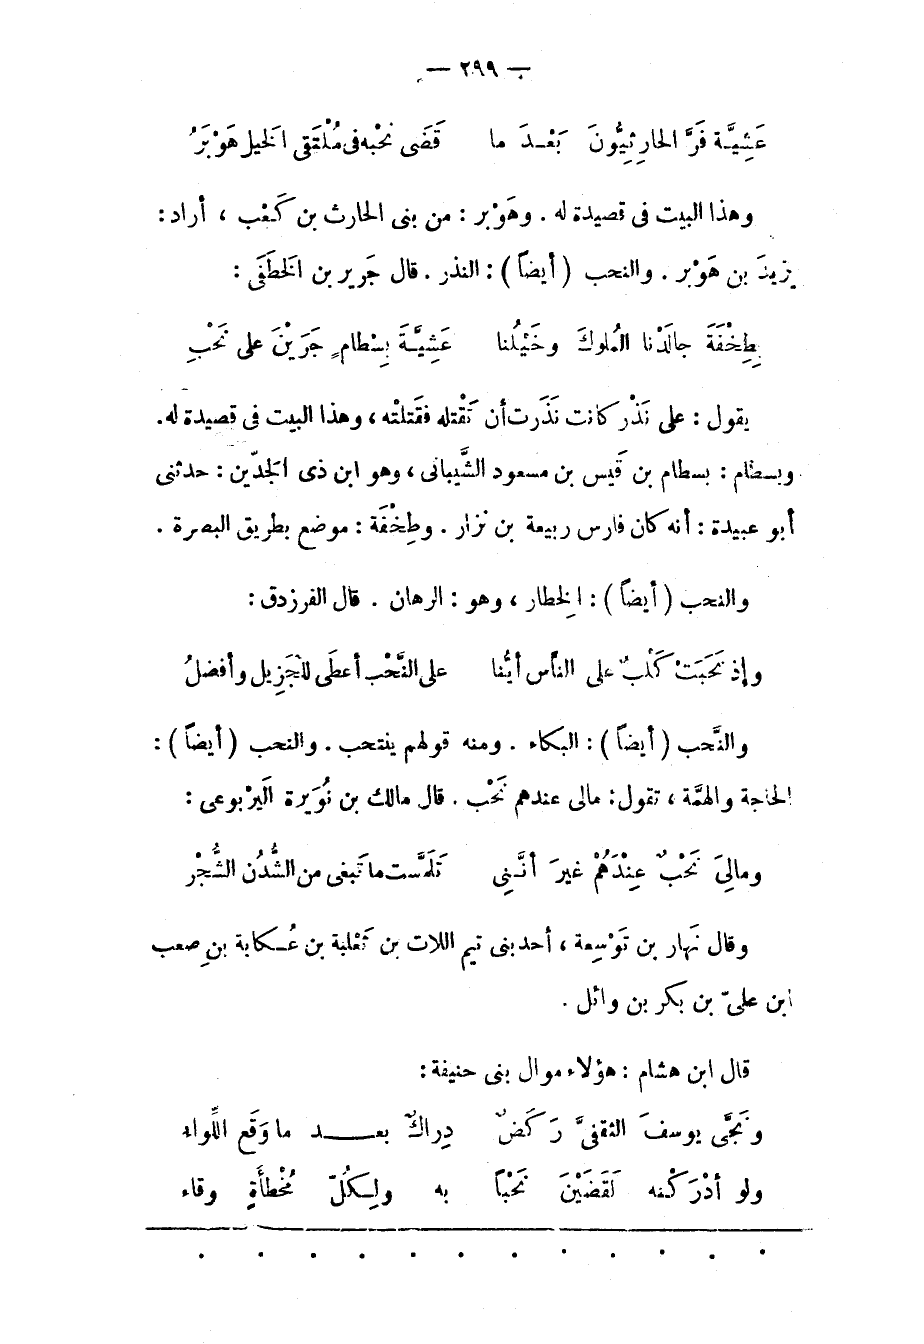 — ٢٩٩ —
عَشِيَّة فَرَّ الحارِثِيُّونَ بَعْـدَ ما قَضَى نحْبه فى مُلْتَقى الخيل هَوْبَرُ
وهذا البيت فى قصيدة له . وهَوْبر : من بنى الحارث بن كَعْب ، أراد :
يزيدَ بن هَوْبر . والنحب ( أيضاً ) : النذر . قال جَرير بن الخَطَفَى :
بِطِخْفَةَ جالَدْنا المُلوكَ وخَيْلُنا عَشِيَّـةَ بِسْطامٍ جَرَيْنَ على نَحْبِ
يقول : على نَذْر كانت نَذَرت أن تَقْتله فقَتلتْه ، وهذا البيت فى قصيدة له.
وبسطام : بسطام بن قَيس بن مسعود الشَّيبانى ، وهو ابن ذى الجَدّين : حدثنى
أبو عبيدة : أنه كان فارس ربيعة بن نزار . وطِخْفَة : موضع بطريق البصرة .
والنحب ( أيضاً ) : الخِطار ، وهو : الرهان . قال الفرزدق :
وإذ نَحَبَتْ كَلْبٌ على النَّاس أيُّنا على النَّحْب أعطَى للْجَزِيل وأفضلُ
والنَّحب ( أيضاً ) : البكاء . ومنه قولهم ينتحب . والنحب ( أيضاً ) :
الحاجة والهمَّة ، تقول : مالى عندهم نَحْب . قال مالك بن نُوَيرة اليَرْبوعى :
ومالِىَ نَحْبٌ عِنْدَهُمْ غيرَ أنَّـنِى تَلَمَّست ما تَبغى من الشُّدُن الشُّجْر
وقال نَهار بن تَوْسِعة ، أحد بنى تيم اللات بن ثَعْلبة بن عُـكابة بن صعب
ابن علىّ بن بكر بن وائل .
قال ابن هشام : هؤلاء موال بنى حنيفة :
ونَجَّى يوسفَ الثقفىَّ رَكَضٌ دِراكٌ بعـــد ما وَقَع اللِّواء
ولو أدْرَكْنه لَقَضَيْنَ نَحْباً به ولِـكُلّ مُخْطأَةٍ وقاء